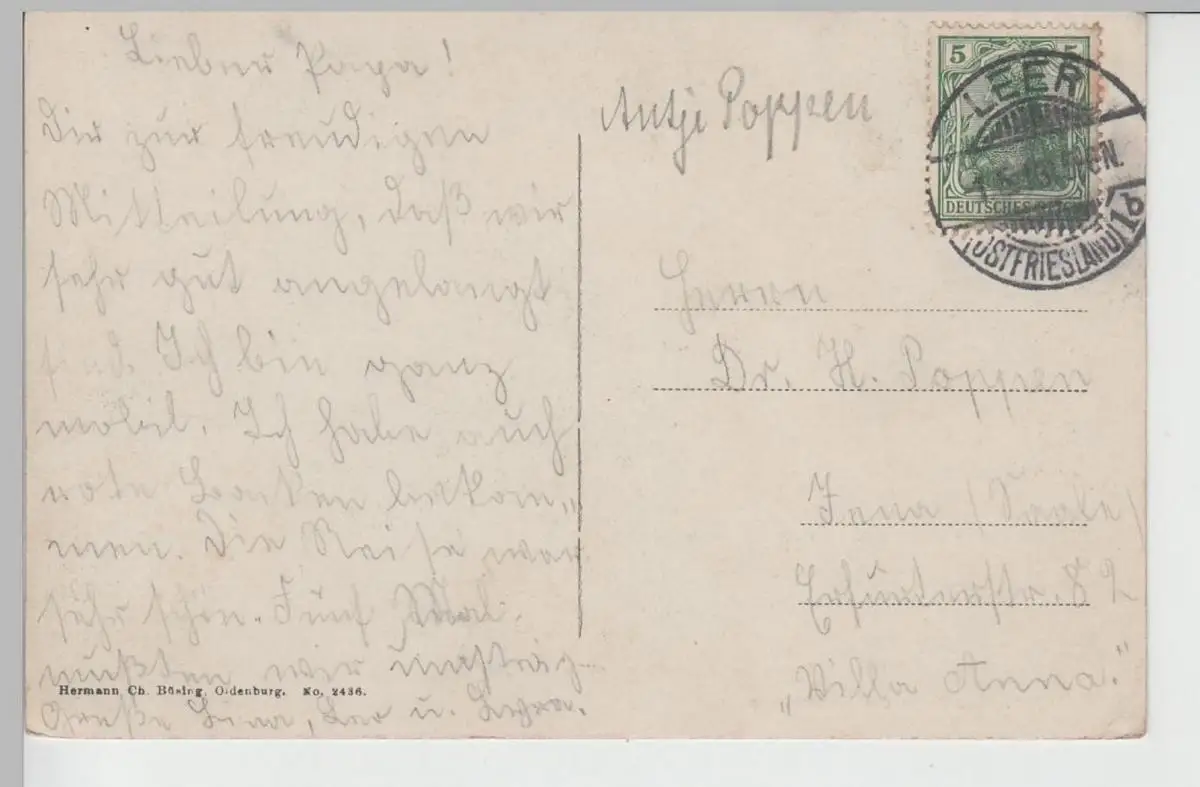 Lieber Papa!
Dir zur freudigen
Mitteilung, daß wir
sehr gut angelangt
sind. Ich bin ganz
mobil. Ich habe auch
rote Backen bekom„
men. Die Reise war
sehr schön. Fünf Mal
mußten wir umsteig–
Grüße Lina, Leo u.
Hermann Ch. Büsing, Oldenburg. No. 2436.
Antje Poppen
5 5
DEUTSCHES REICH
LEER
(OSTFRIESLAND) 1b
Herrn
Dr. H. Poppen
Jena / Saale /
Erfurterstr. 82
„Villa Anna."